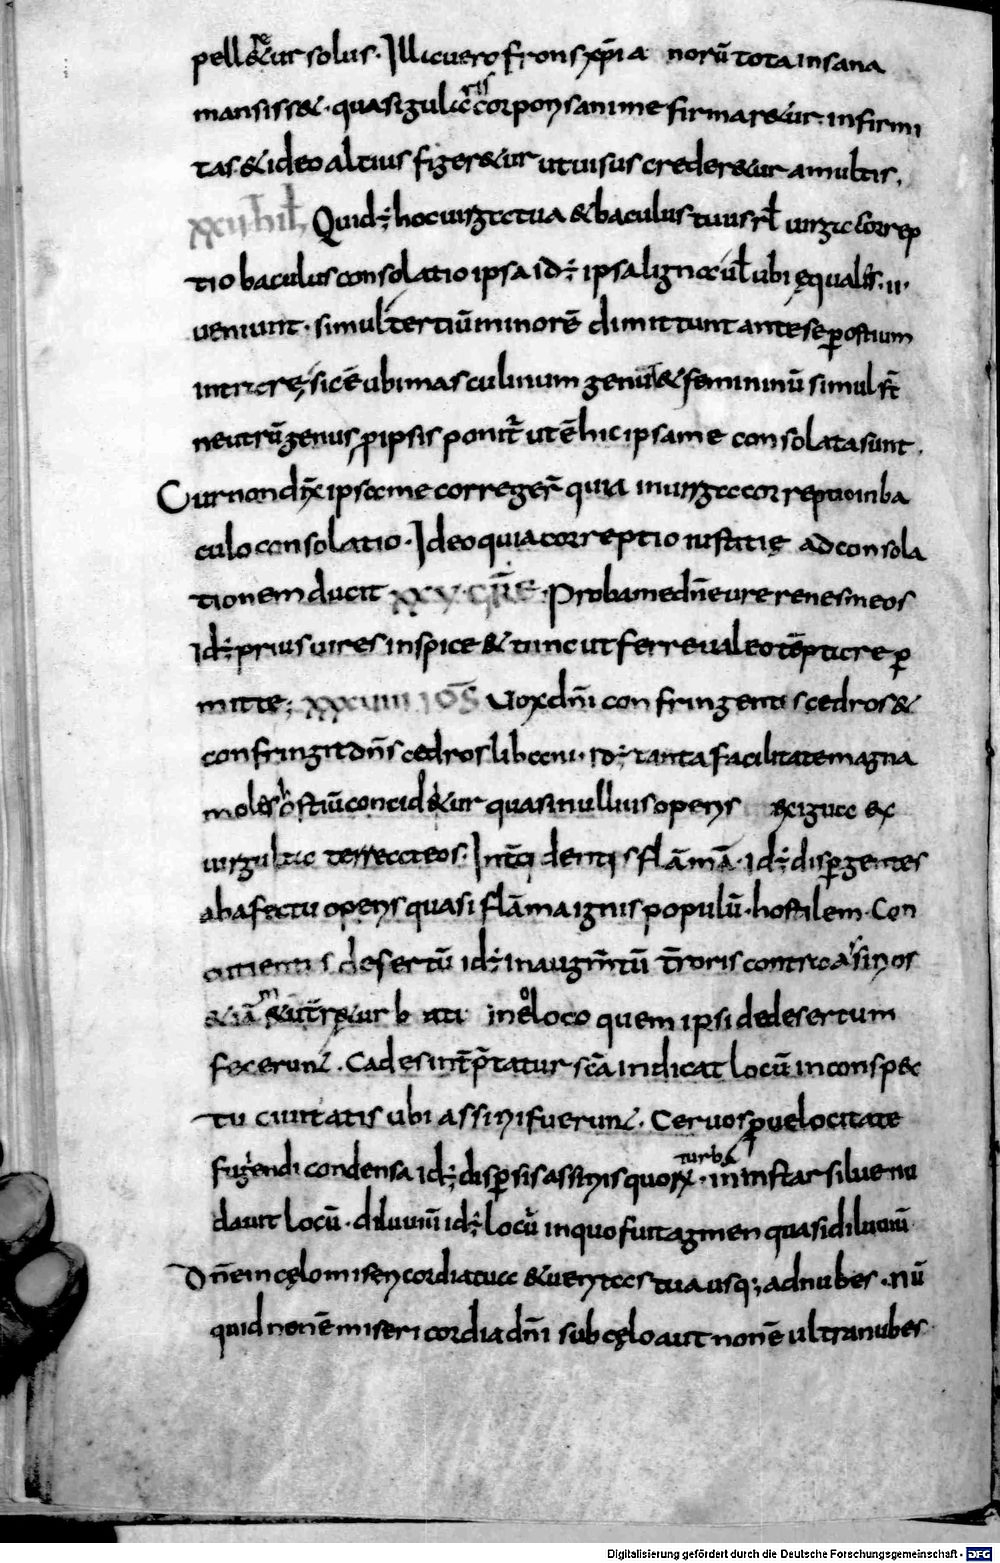 pell&ur solus. Illic uero frons xp̄ia norū tota insana
mansiss&. quasi gula corporis anime firmar&ur. infirmi
tas. & ideo altius figer&ur ut uisus creder&ur a multis.
XXII hil̄. Quid ē hoc uirga tua & baculus tuus rl̄ uirga correp
tio baculus consolatio ipsa id ē ipsa ligna ul̄ ubi ęquales .ii.
ueniunt. simul tertiū minorē dimittunt ante se p̱ ostium
intrare, sic ē ubi masculinum genus & femininū simul st̄
neutrū genus p̱ ipsis ponit̄ ut ē hic ipsa me consolata sunt.
Cur non dix̄ ipsa me correger̄ quia in uirga correptio in ba
culo consolatio. Ideo quia correptio iustitię ad consola
tionem ducit XXV Proba me dn̄e ure renes meos
Id ē prius uires inspice & tunc ut ferre ualeo tēptare p̱
mitte; XXXVIII Uox dn̄i confringentis cedros &
confringit dn̄s cedros libani. id ē tanta facilitate magna
moles ostiū concid&ur quasi nullius operis exigua ex
uirgulta terre a&teos. Int̄cidentis flāmā. id ē disp̱gentes
ab afectu operis quasi flāma ignis populū. hostilem. Con
cutientis desertū id ē in augm̄tū t̄roris contra asirios
in eo loco quem ipsi dedesertum
fecerunt. Cades int̄p̄tatur sc̄a indicat locū in conspec
tu ciuitatis ubi assirii fuerunt. Ceruos p̱ uelocitate
fugiendi condensa id ē disp̱sis assiriis quorū turba. in instar silue nu
dauit locū. diluuiū id ē locū in quo fuit agmen quasi diluuiū
Dn̄e in cęlo misericordia tua & ueritas tua usq; ad nubes. Nū
quid non ē misericordia dn̄i sub cęlo aut non ē ultra nubes
Digitalisierung gefördert durch die Deutsche Forschungsgemeinschaft - DFG